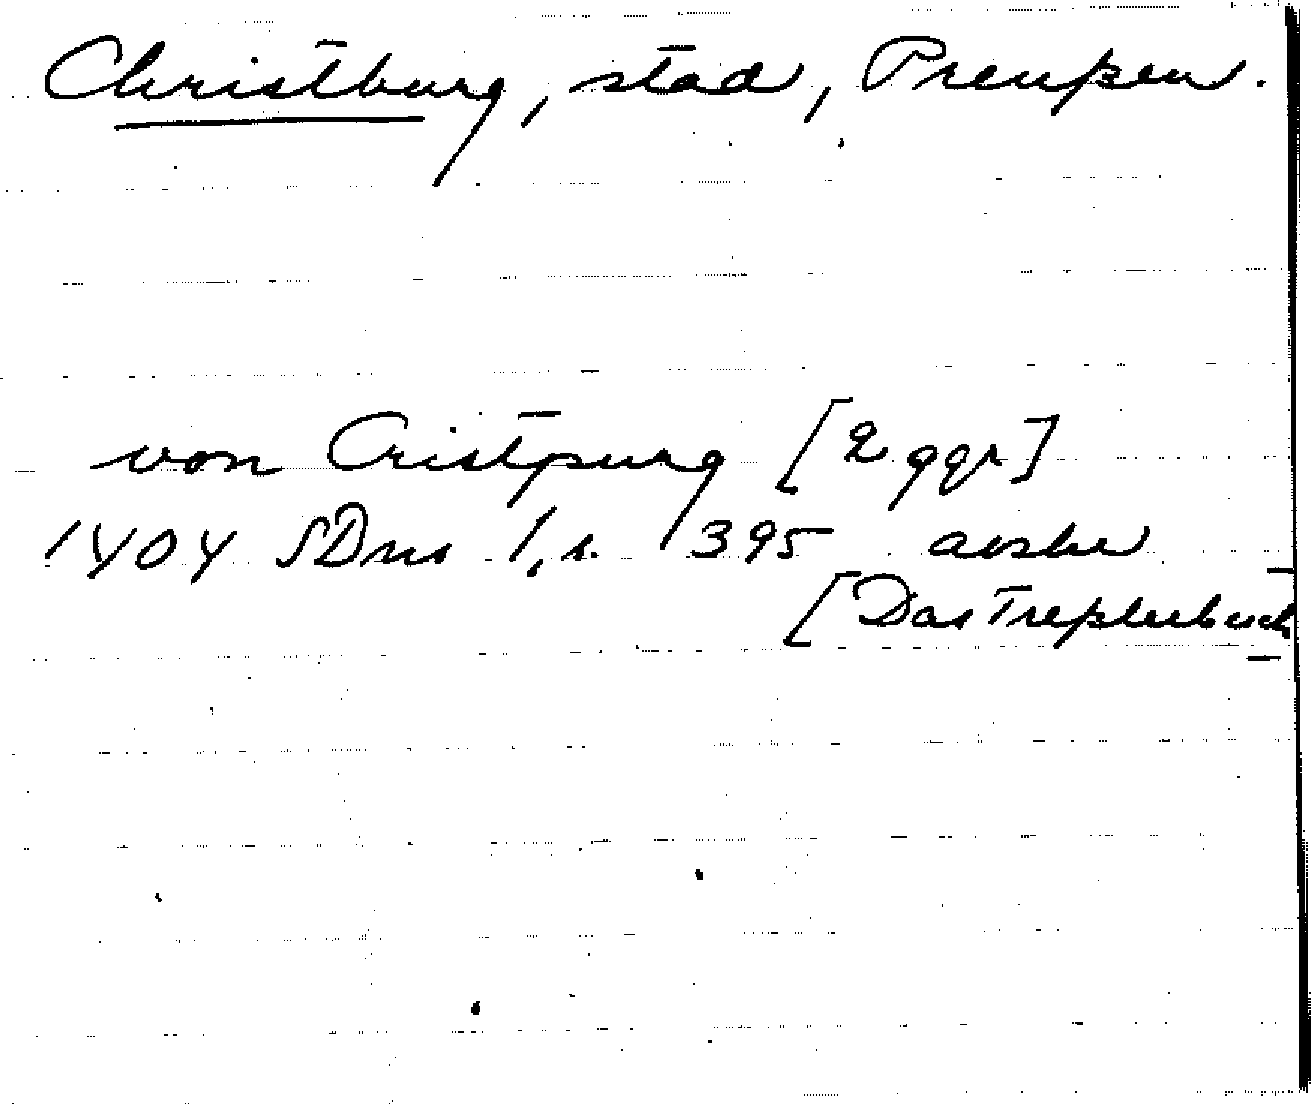 Christburg, stad, Preußen.
von Cristpurg [2 ggr]
1404 SDns 1, s. 395 avskr
[Das Treßlerbuch